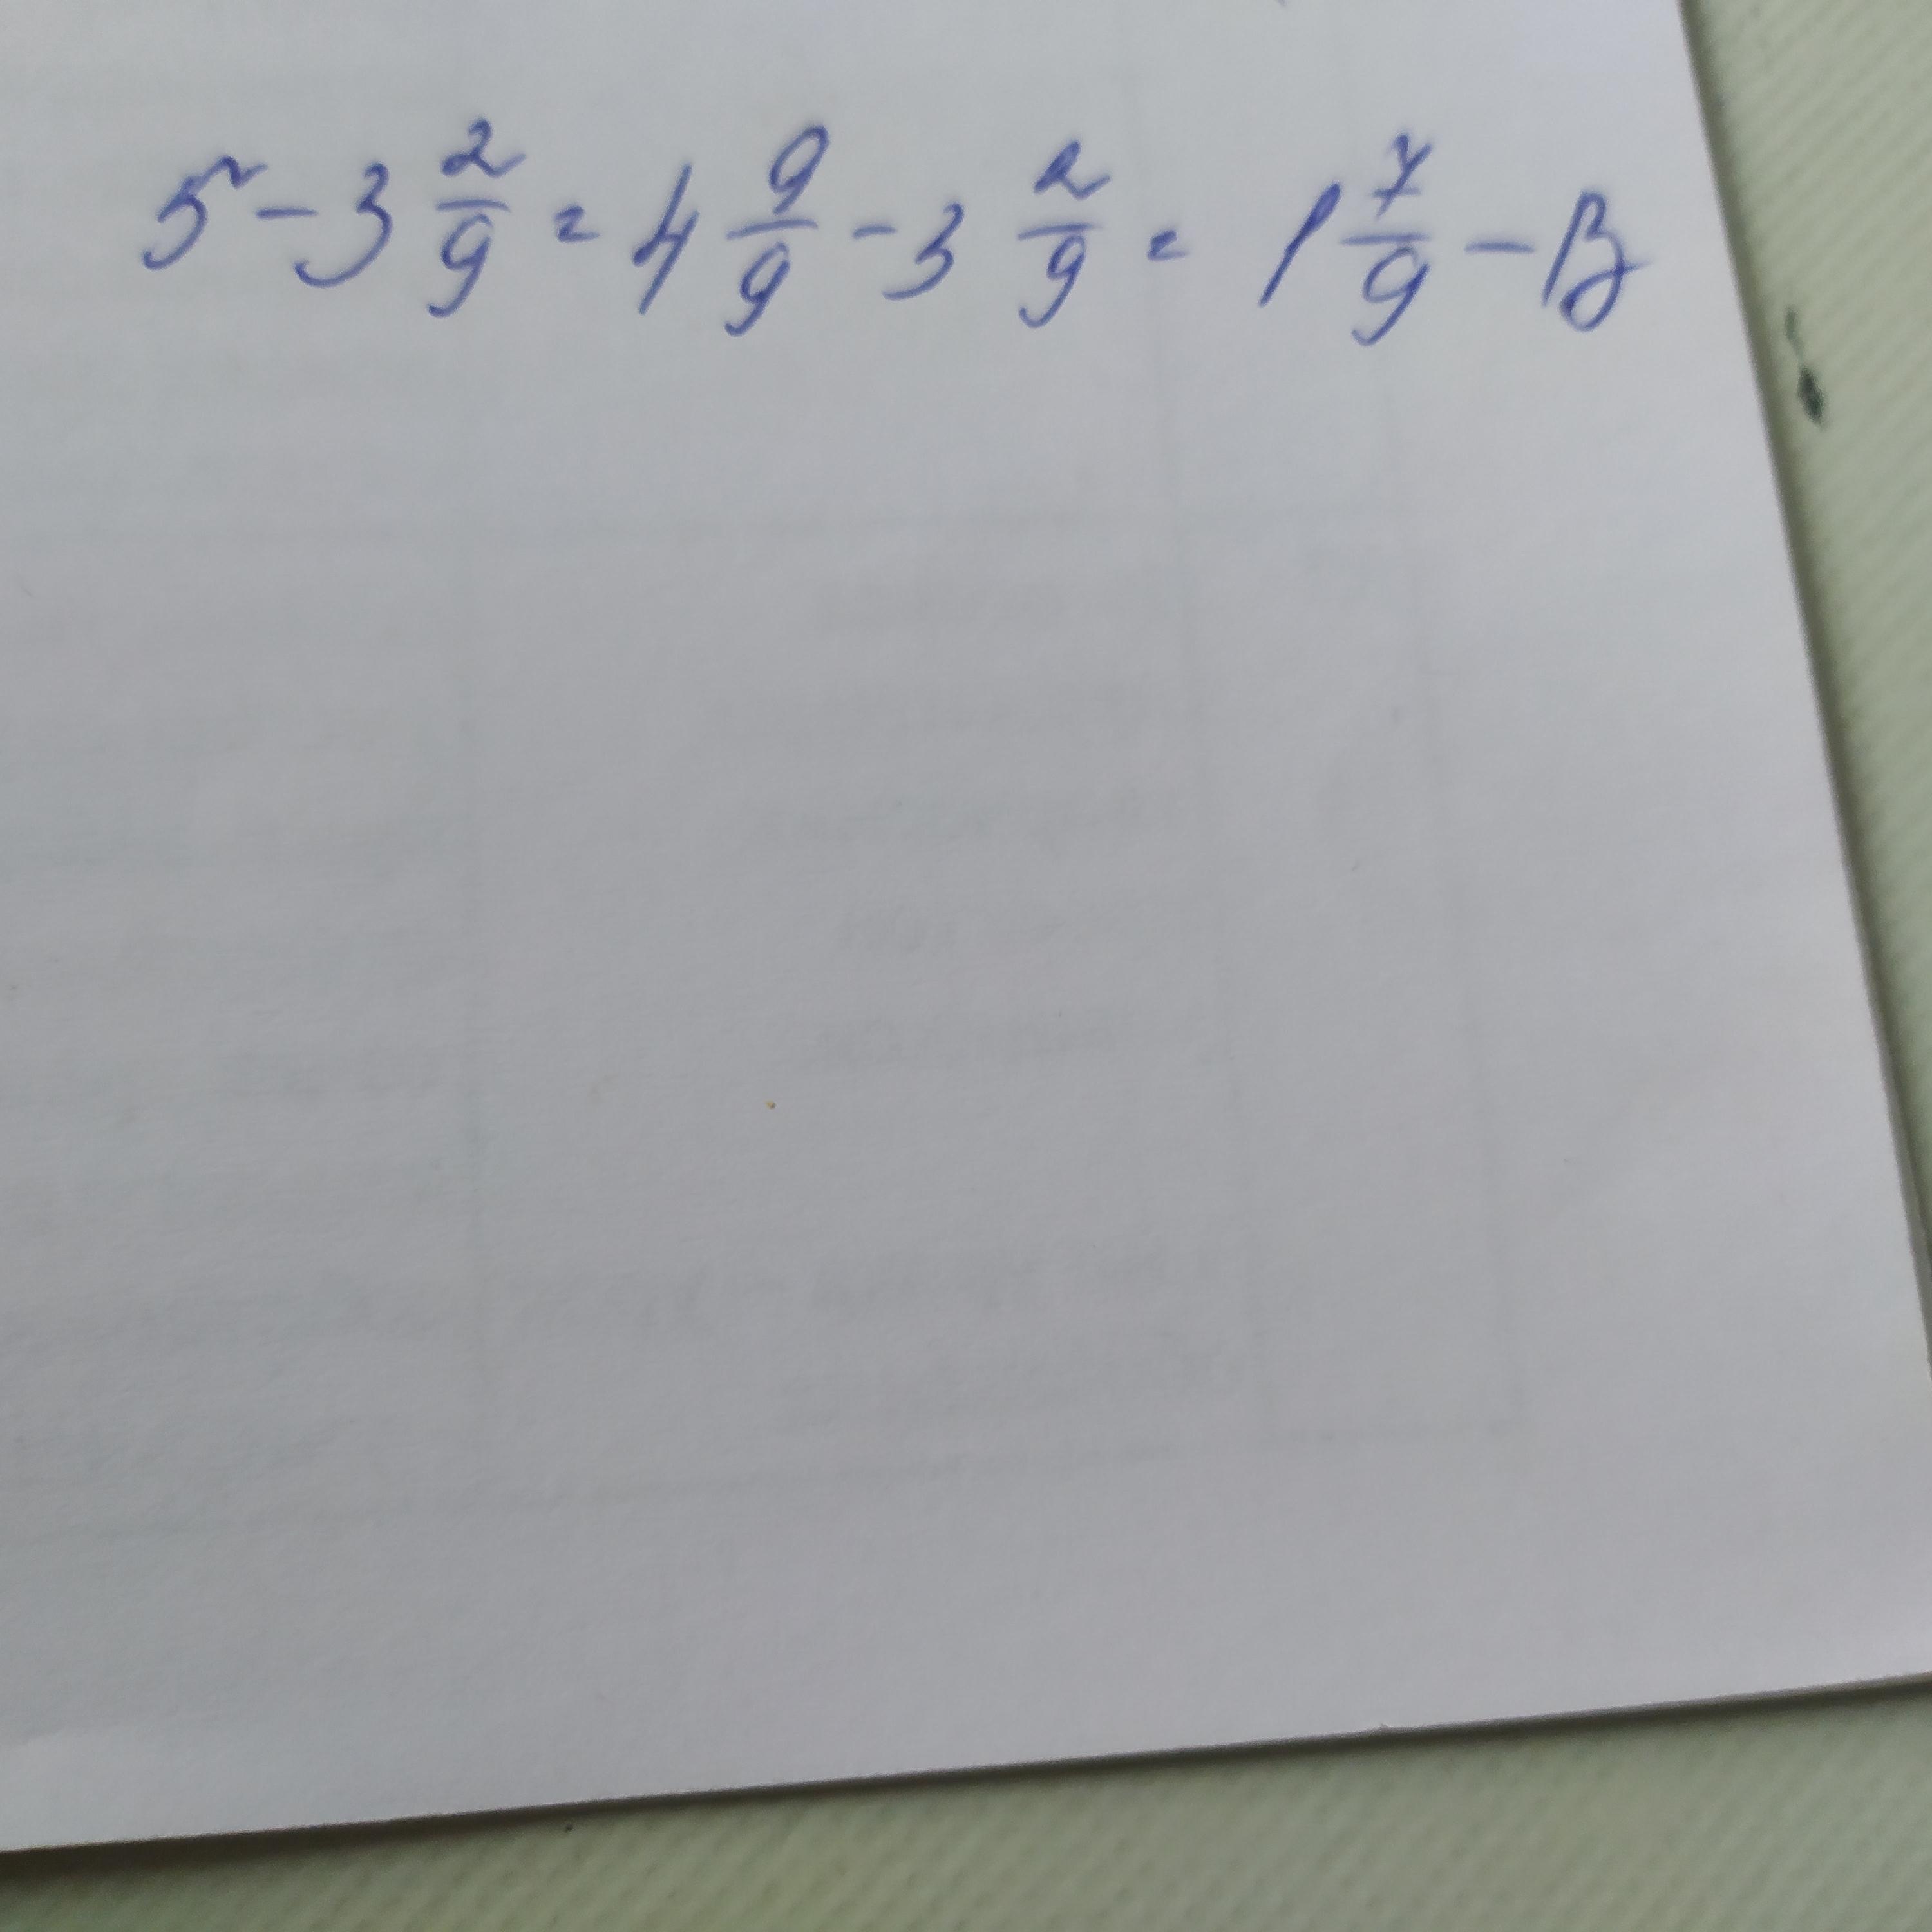 5 - 3 2/9 = 4 9/9 - 3 2/9 = 1 7/9 - В